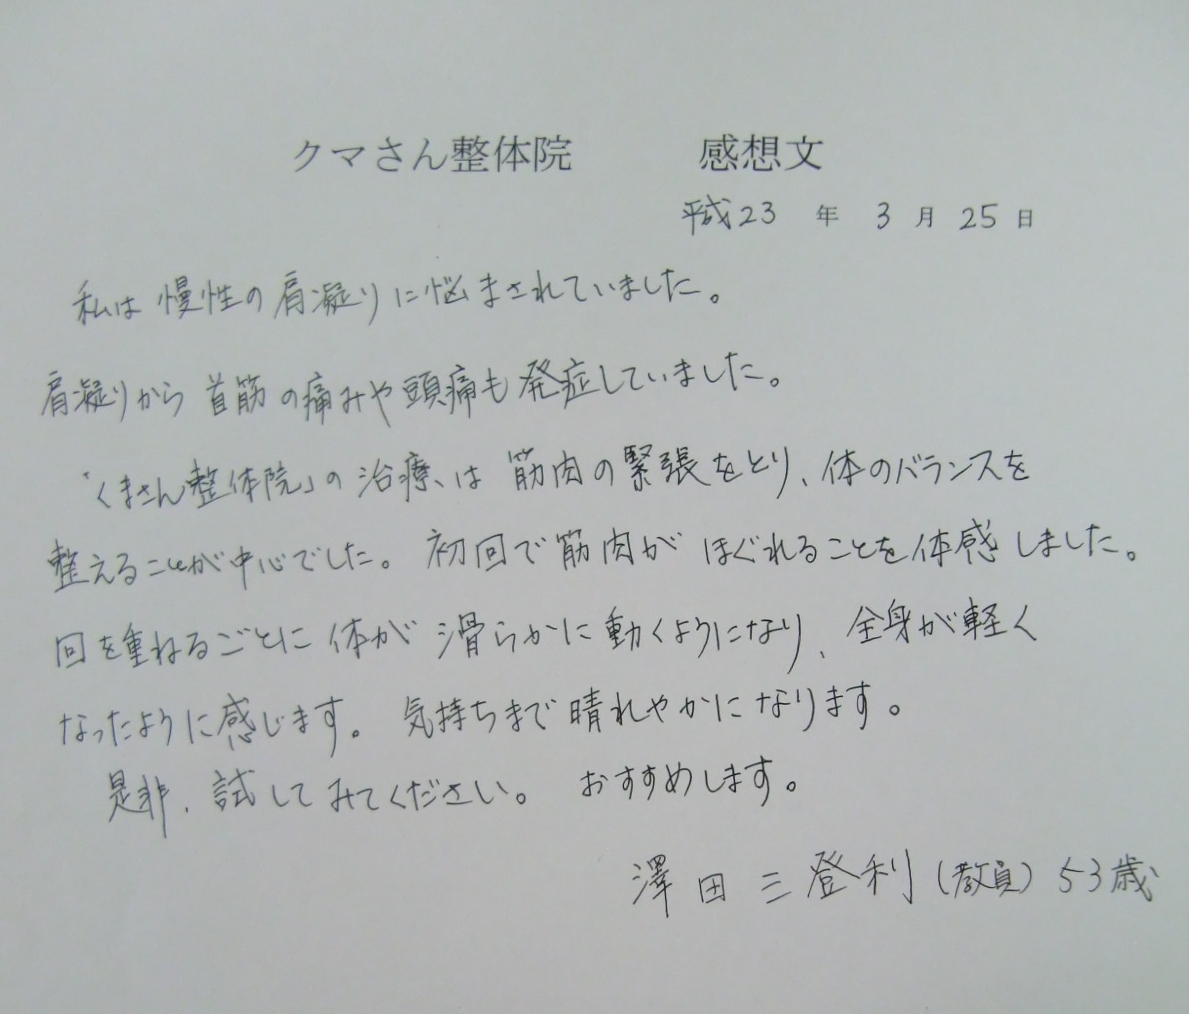 クマさん整体院　感想文
平成23 年 3 月 25 日
私は慢性の肩凝りに悩まされていました。
肩凝りから首筋の痛みや頭痛も発症していました。
「くまさん整体院」の治療は筋肉の緊張をとり、体のバランスを
整えることが中心でした。初回で筋肉がほぐれることを体感しました。
回を重ねるごとに体が滑らかに動くようになり、全身が軽く
なったように感じます。気持ちまで晴れやかになります。
是非、試してみてください。おすすめします。
澤田三登利(教員)53歳